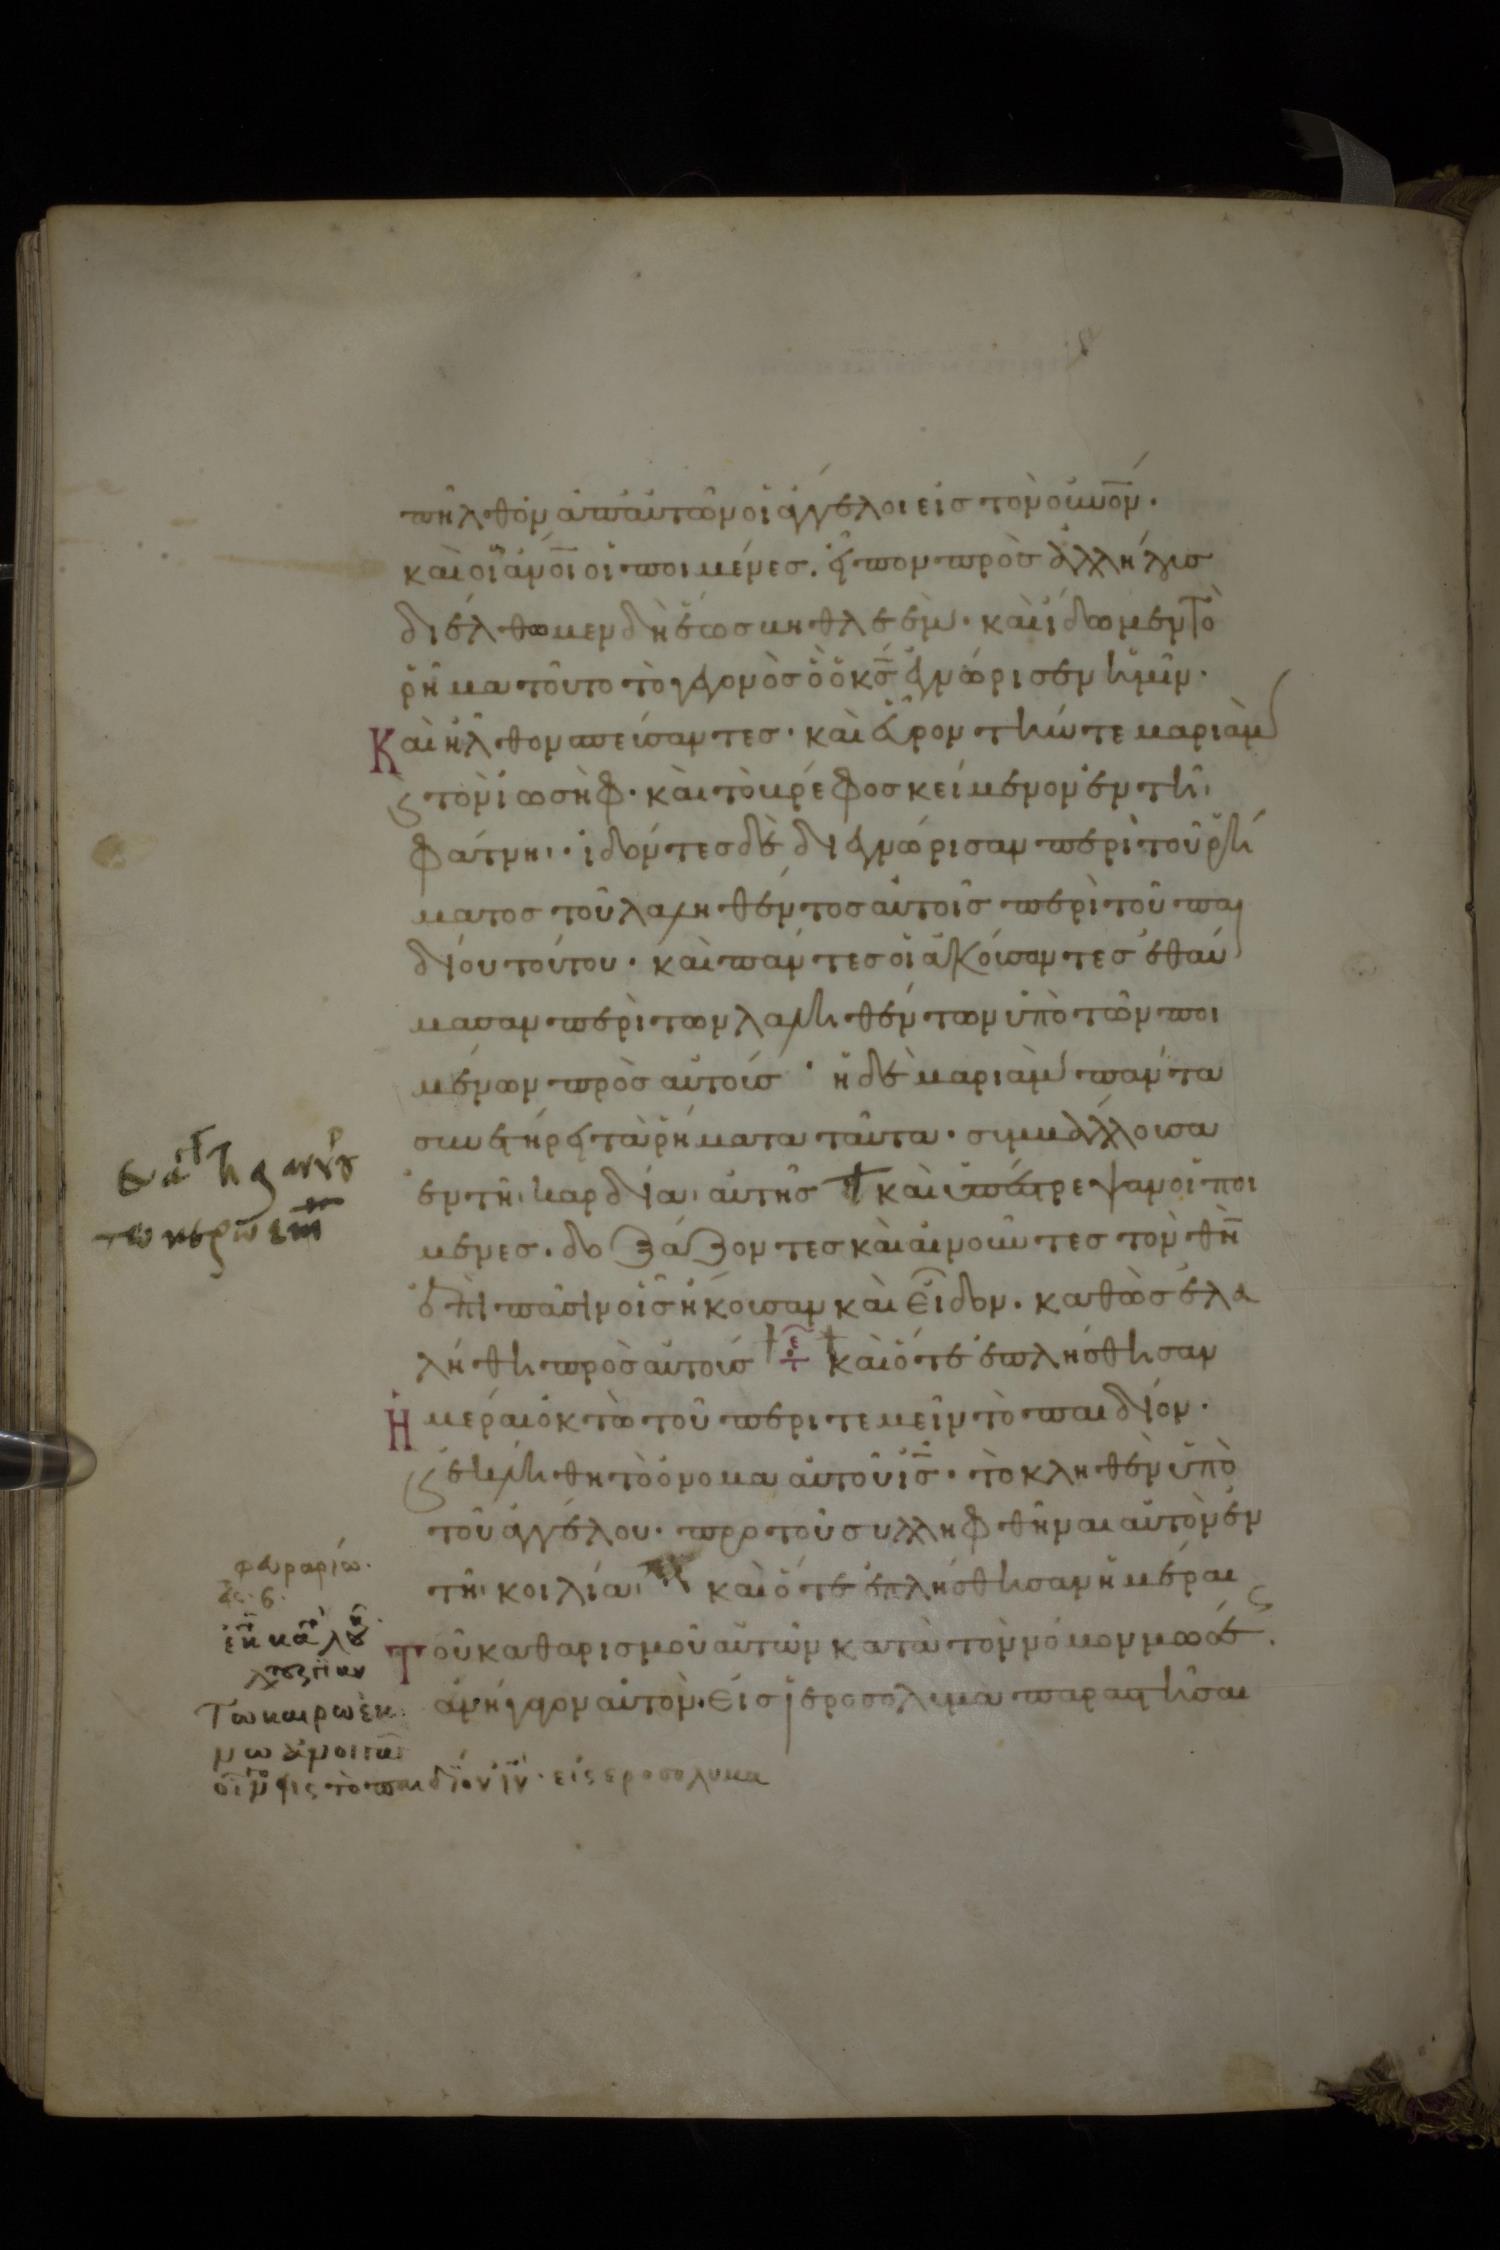 πῆλθον ἀπ' αὐτῶν οἱ ἄγγελοι εἰς τὸν οὐνον.
καὶ οἱ ἄνοι οἱ ποιμένες. εἶπον πρὸς ἀλλήλους
διέλθωμεν δὴ ἕως βηθλεὲμ. καὶ ἴδωμεν τὸ
ῥῆμα τοῦτο τὸ γεγονὸς ὃ ὁ κς ἐγνώρισεν ἡμῖν.
Καὶ ἦλθον σπεύσαντες. καὶ εὗρον τήν τε μαριὰμ
ϛ τὸν ἰωσὴφ. καὶ τὸ βρέφος κείμενον ἐν τῆι
φάτνηι. ἰδόντες δὲ διεγνώρισαν περὶ τοῦ ῥή
ματος τοῦ λαληθέντος αὐτοῖς περὶ τοῦ παι
δίου τούτου. καὶ πάντες οἱ ἀκούσαντες ἐθαύ
μασαν περὶ τῶν λαληθέντων ὑπὸ τῶν ποι
μένων πρὸς αὐτούς. ἡ δὲ μαριὰμ πάντα
συνετήρει τὰ ῥήματα ταῦτα. συμβάλλουσα
ἐν τῆι καρδίαι αὐτῆς καὶ ὑπέστρεψαν οἱ ποι
μένες. δοξάζοντες καὶ αἰνοῦντες τὸν θν
ἐπὶ πᾶσιν οἷς ἤκουσαν καὶ εἶδον. καθὼς ἐλα
λήθη πρὸς αὐτούς καὶ ὅτε ἐπλήσθησαν
Ἡμέραι ὀκτὼ τοῦ περιτεμεῖν τὸ παιδίον.
ϛ ἐκλήθη τὸ ὄνομα αὐτοῦ ις. τὸ κληθὲν ὑπὸ
τοῦ ἀγγέλου. προ τοῦ συλληφθῆναι αὐτὸν ἐν
τῆι κοιλίαι καὶ ὅτε ἐπλήσθησαν ἡμέραι
Τοῦ καθαρισμοῦ αὐτῶν κατὰ τὸν νόμον μωσέως.
ἀνήγαγον αὐτὸν. εἰς ἱεροσόλυμα παραστῆσαι
τω καιρω εκει
φευραρίω.
Τω καιρω ἐκει
νω
τὸ παιδίον ἰν. εἰς εροσολυμα